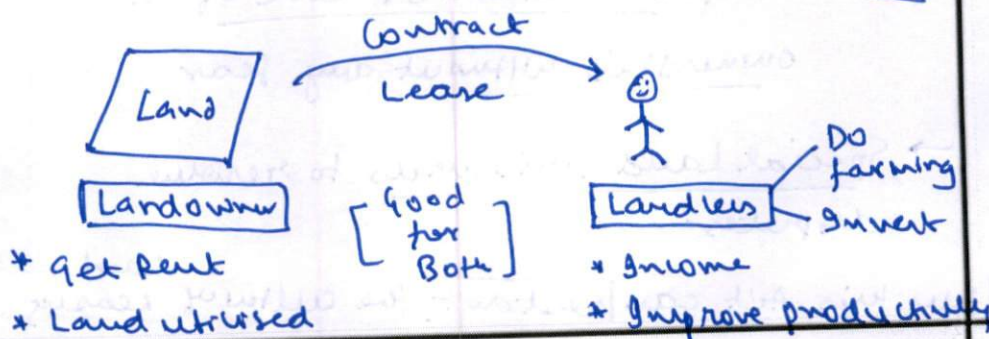 Contract
Lease
Land
Landowner
Good
for
Both
Landless
Do
farming
Invest
* Get Rent
* Land utilised
* Income
* Improve productivity